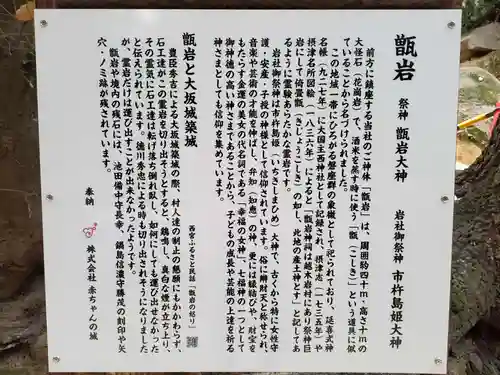 甑岩
祭神 甑岩大神
岩社御祭神 市杵島姫大神
前方に鎮座する当社のご神体「甑岩」は、周囲約四十m・高さ十mの
大怪石（花崗岩）で、酒米を蒸す時に使う「甑（こしき）」という道具に似
ていることから名づけられました。
この地域一帯にひろがる磐座群の象徴として祀られており、延喜式神
名帳（九二七年）に大国主西神社として記録され、摂津志（一七三五年）や
摂津名所図会（一八三六年）によると「甑岩神祠は越木岩村にあり祭神巨
岩にして倚畳甑（きじょうこしき）の如し、此地の産土神とす」と記してあ
るように霊験あらたかな霊岩です。
岩社御祭神は市杵島姫（いちきしまひめ）大神で、古くから特に女性守
護・安産・子授の神様として信仰されています。俗に辨財天と称せられ、
音楽や芸術の才能を伸ばし、弁知（知恵）の神、更には縁結びや、財宝を
もたらす金運の美女の代名詞である「幸福の女神」、七福神の一つとして
御神徳の高い神さまであることから、子どもの成長や芸能の上達を祈る
神さまとしても信仰を集めています。
甑岩と大坂城築城
西宮ふるさと民話「甑岩の怒り」
豊臣秀吉による大坂城築城の際、村人達の制止の懇願にもかかわらず、
石工達がこの霊岩を切り出そうとすると、鶏鳴し、真白な煙が立ち上り、
その霊気に石工達は転げ落ち倒れ臥し、如何にしても運び出せなかった
と伝えられています。徳川秀忠による時も切り出されそうになりました
が、霊岩だけは運び出すことが出来なかったようです。
甑岩や境内の残石には、池田備中守長幸、鍋島信濃守勝茂の刻印や矢
穴・ノミ跡が残されています。
奉納
株式会社 赤ちゃんの城